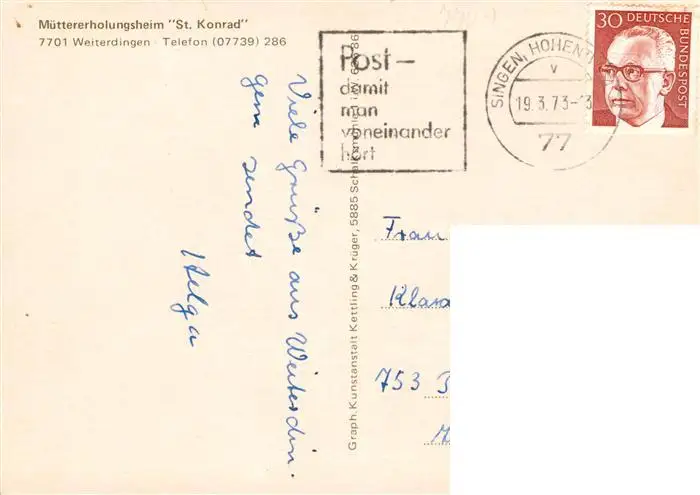 Müttererholungsheim "St. Konrad"
7701 Weiterdingen · Telefon (07739) 286
Post –
damit
man
voneinander
hört
SINGEN, HOHENT
v
19.3.73-13
77
30 DEUTSCHE
BUNDESPOST
Viele Grüße aus Weiterdin.
gen sendet
Helga
Graph. Kunstanstalt Kettling & Krüger, 5885 Schalksmühle i. W.
Frau
Klara
753